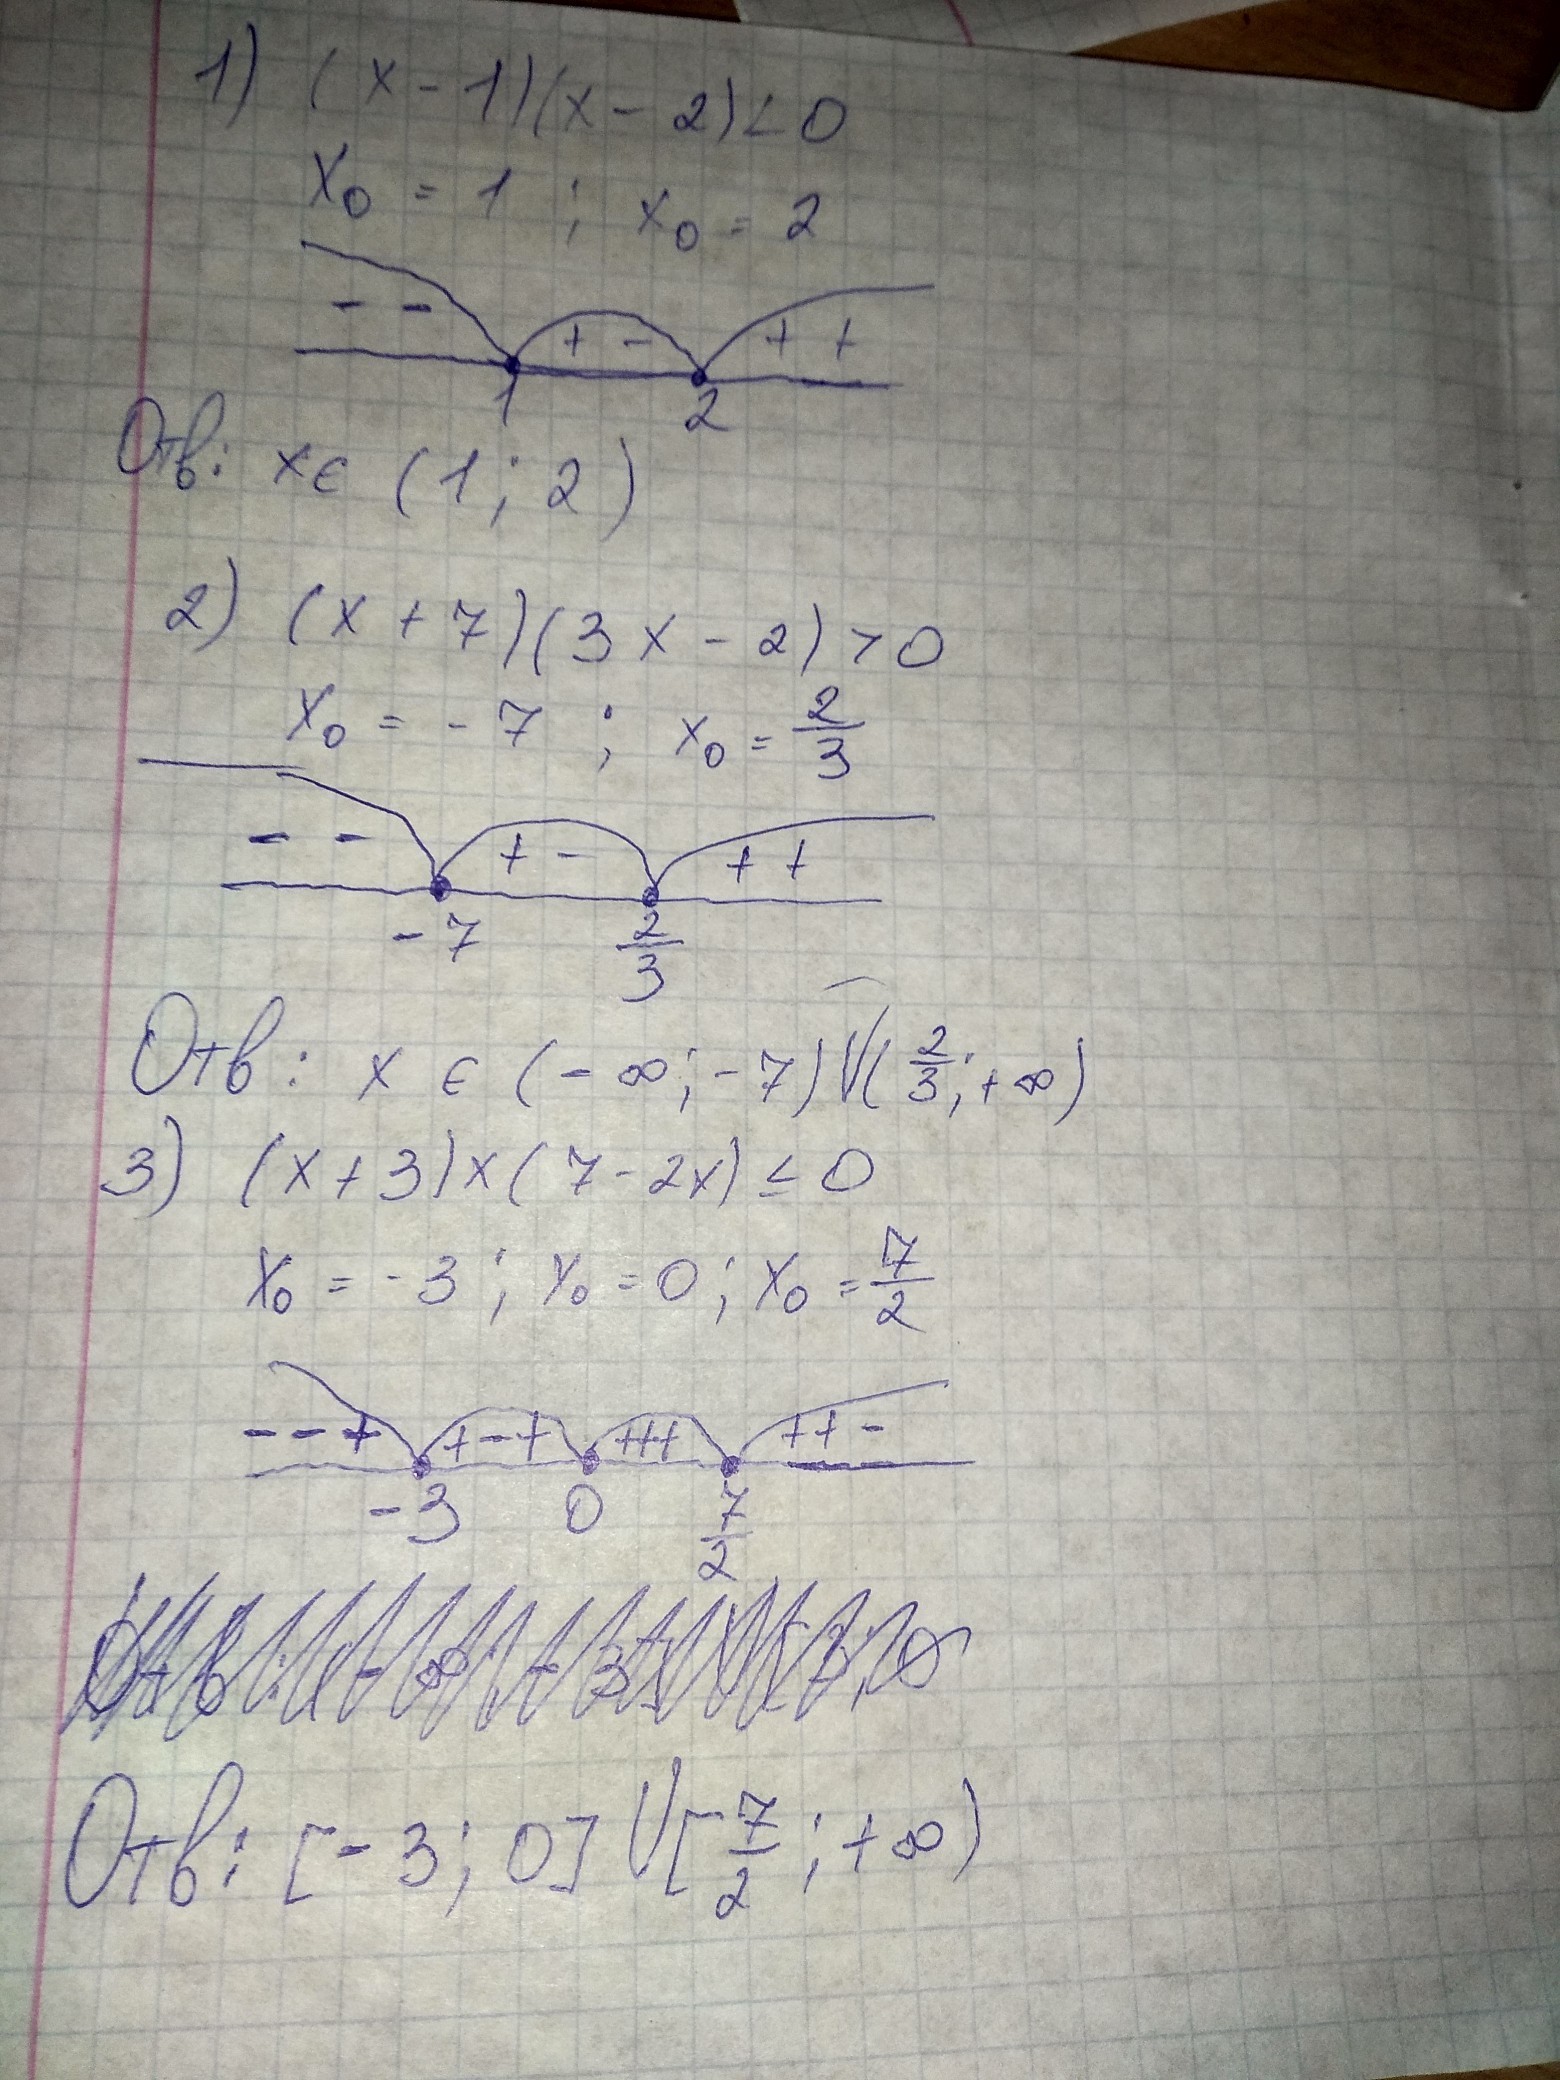 1) (x - 1)(x - 2) < 0
x₀ = 1 ; x₀ = 2
- - + - + +
1 2
Отв: x ∈ (1; 2)
2) (x + 7)(3x - 2) > 0
x₀ = - 7 ; x₀ = 2/3
- - + - + +
- 7 2/3
Отв: x ∈ (- ∞; - 7) ∪ (2/3; + ∞)
3) (x + 3)x(7 - 2x) ≤ 0
x₀ = - 3 ; x₀ = 0 ; x₀ = 7/2
- - + + - + + + + + + -
- 3 0 7/2
Отв: [- 3; 0] ∪ [7/2; + ∞)